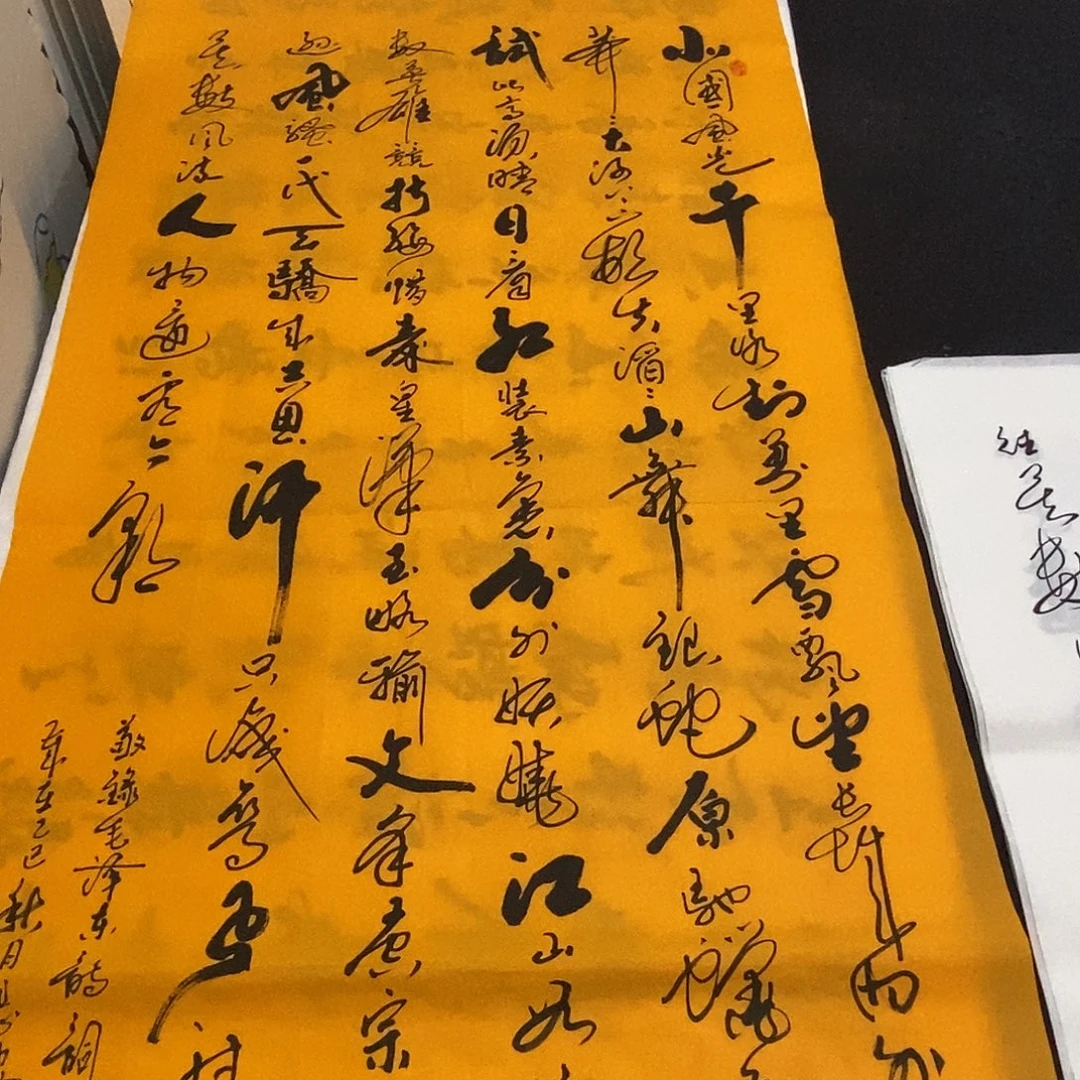 北國風光千里冰封萬里雪飄望長城內外
莽大河上下頓失滔滔山舞銀蛇原馳蠟
試比高須晴日看紅裝素裹分外妖嬈江山如
數英雄競折腰惜秦皇漢武略輸文采唐宗
遜風騷一代天驕成吉思汗只識彎弓射
是數風流人物還看今朝
敬錄毛澤東詩詞
秋月
數